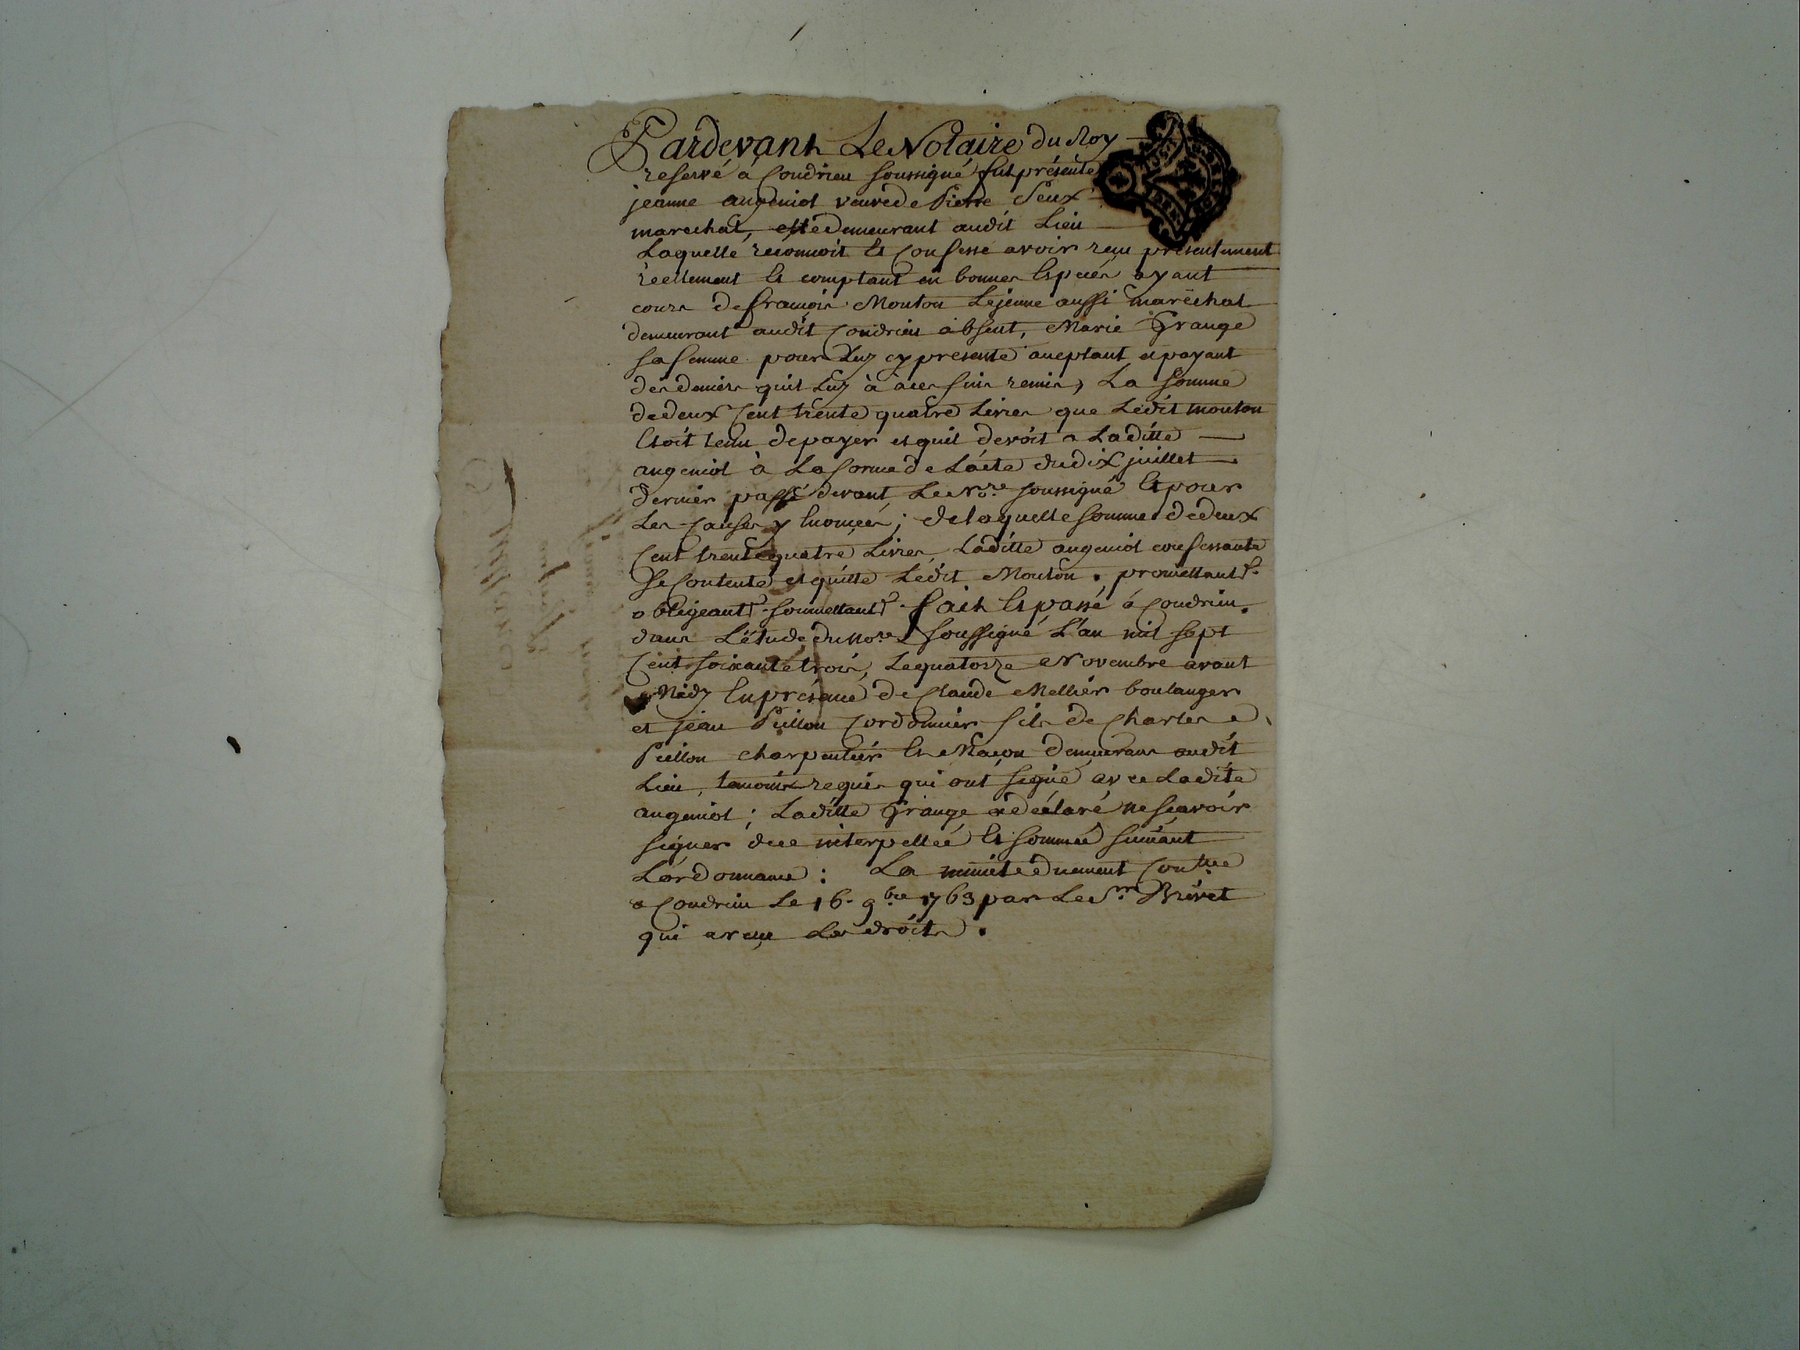 Pardevant Le Notaire du Roy
reservé à Condrieu soussigné fut présente
jeanne angeniol veuve de Pierre Seux
marechal, elle demeurant audit Lieu
Laquelle reconnoit et confesse avoir reçu présentement
reellement et comptant en bonnes especes ayant
cours de françois Mouton Lejeune aussi maréchal
demeurant audit Condrieu absent, Marie Grange
sa femme pour Luy cy présente aceptant et payant
des deniers quil Luy à à ces fins remis, La somme
de deux Cent trente quatre Livres que Ledit mouton
Etoit tenu de payer et quil devoit a Laditte
angeniol à La forme de L'acte du dix juillet
dernier passé devant Le No.re soussigné Et pour
Les Causes y Enoncées ; de laquelle somme de deux
Cent trente quatre Livres, Laditte angeniol confessante
Se Contente et quitte Ledit Mouton. promettant &
obligeant & soumettant & fait Et passé à Condrieu.
dans L'étude du no.re soussigné L'an mil sept
Cent soixante trois, Le quatorze Novembre avant
Midy En présence de Claude Mellier boulanger
et jean Peillon Cordonnier fils de Charles
Peillon charpentier Et Maçon demeurans audit
Lieu, temoins requis qui ont signé avec Ladite
angeniol ; Laditte Grange a déclaré ne sçavoir
signer de ce interpellée Et sommée suivant
L'ordonnance : La minute duement Con.llée
a Condrieu Le 16. 9.bre 1763 par Le S.r Brivet
qui a reçu Les droits.